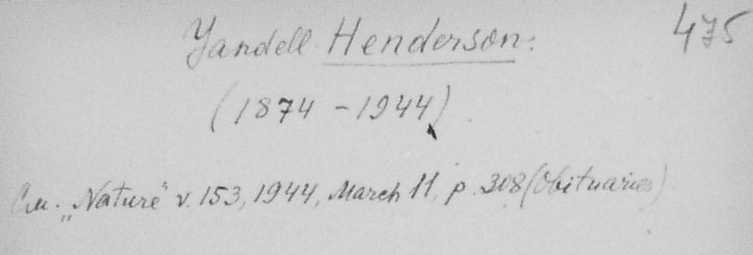 Yandell Henderson. 475
(1874 - 1944)
См. „Nature" v. 153, 1944, March 11, p. 308 (Obituaries)